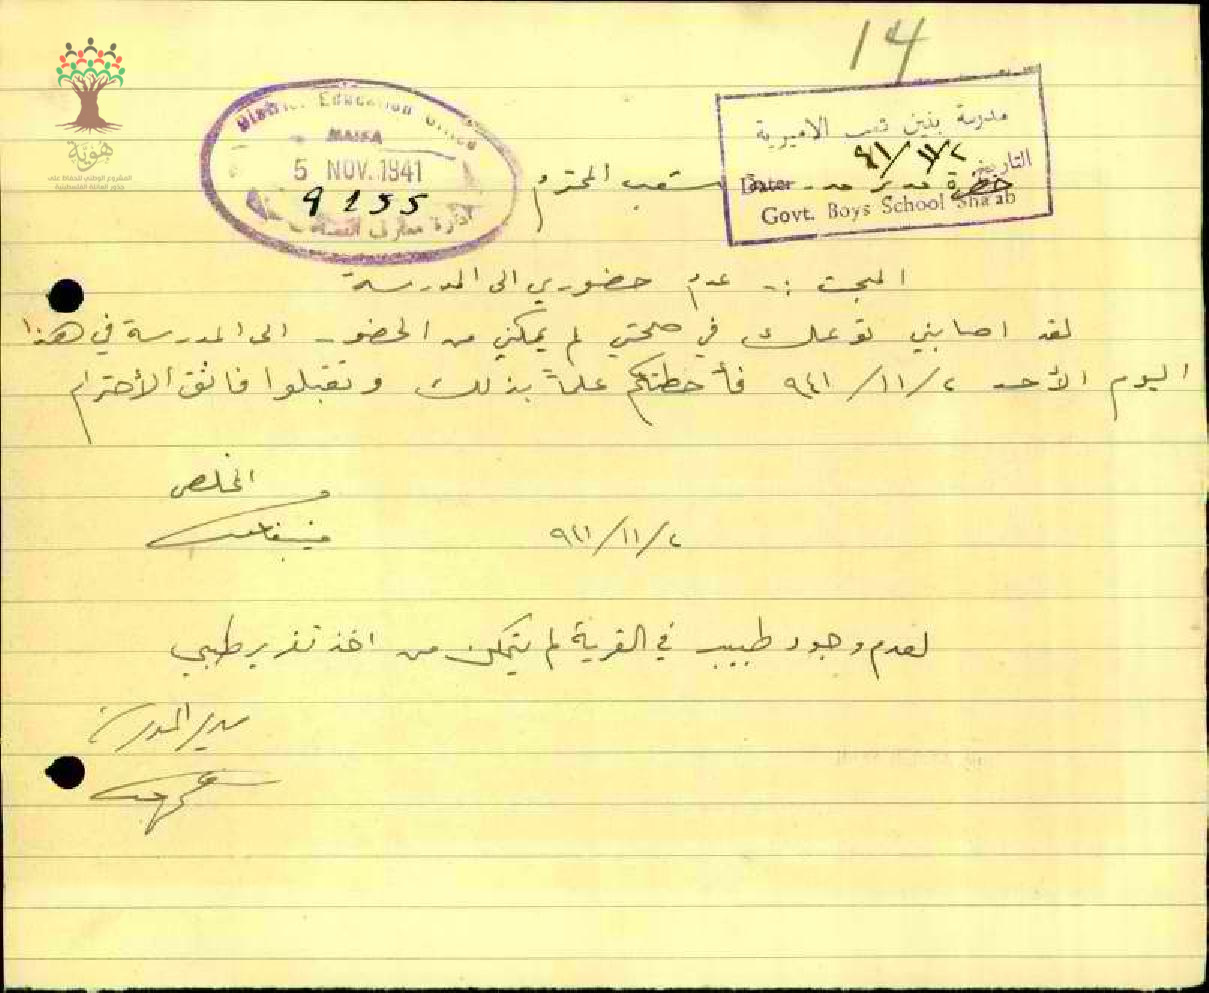 14
هوية
المشروع الوطني للحفاظ على
جذور العائلة الفلسطينية
District Education Office
HAIFA
5 NOV. 1941
9255
ادارة معارف
مدرسة بنين شعب الاميرية
التاريخ ٩٤١/١١/٢
Date
Govt. Boys School Sha'ab
حضرة مدير مدرسة شعب المحترم
المبحث :- عدم حضوري الى المدرسة
لقد اصابني توعك في صحتي لم يمكني من الحضور الى المدرسة في هذا
اليوم الأحد ٩٤١/١١/٢ فأحطتكم علماً بذلك وتقبلوا فائق الأحترام
المخلص
٩٤١/١١/٢
لعدم وجود طبيب في القرية لم يتمكن من اخذ تقرير طبي
مدير المدرسة